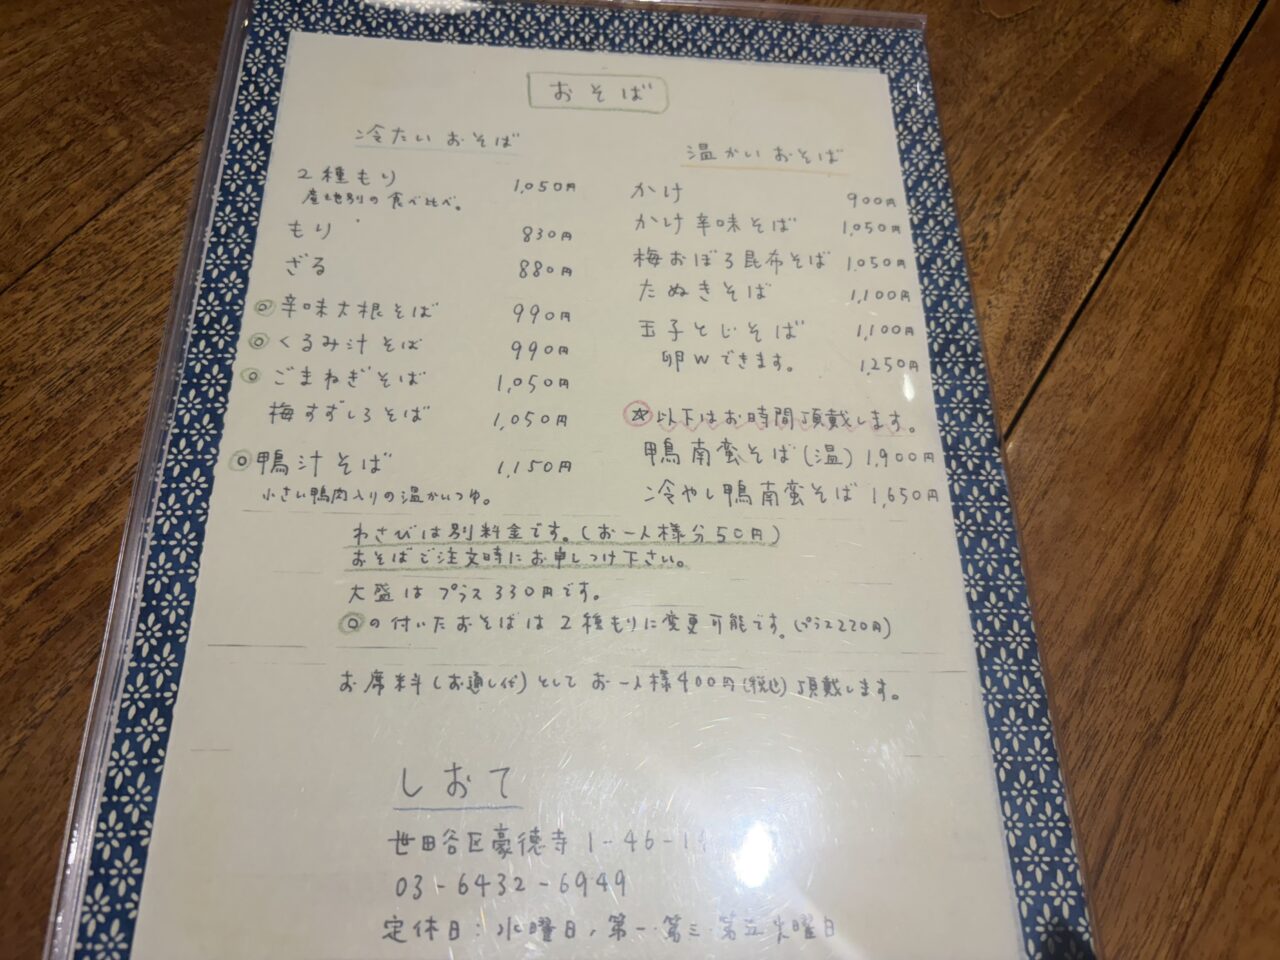 おそば
冷たいおそば
2種もり 1,050円
産地別の食べ比べ。
もり 830円
ざる 880円
◎辛味大根そば 990円
◎くるみ汁そば 990円
◎ごまねぎそば 1,050円
梅すずしろそば 1,050円
◎鴨汁そば 1,150円
小さい鴨肉入りの温かいつゆ。
温かいおそば
かけ 900円
かけ辛味そば 1,050円
梅おぼろ昆布そば 1,050円
たぬきそば 1,100円
玉子とじそば 1,100円
卵Wできます。 1,250円
☆以下はお時間頂戴します。
鴨南蛮そば(温) 1,900円
冷やし鴨南蛮そば 1,650円
わさびは別料金です。(お一人様分50円)
おそばご注文時にお申しつけ下さい。
大盛はプラス330円です。
◎の付いたおそばは2種もりに変更可能です。(プラス220円)
お席料(お通し代)としてお一人様400円(税込)頂戴します。
しおて
世田谷区豪徳寺1-46-14
03-6432-6949
定休日:水曜日、第一・第三・第五火曜日